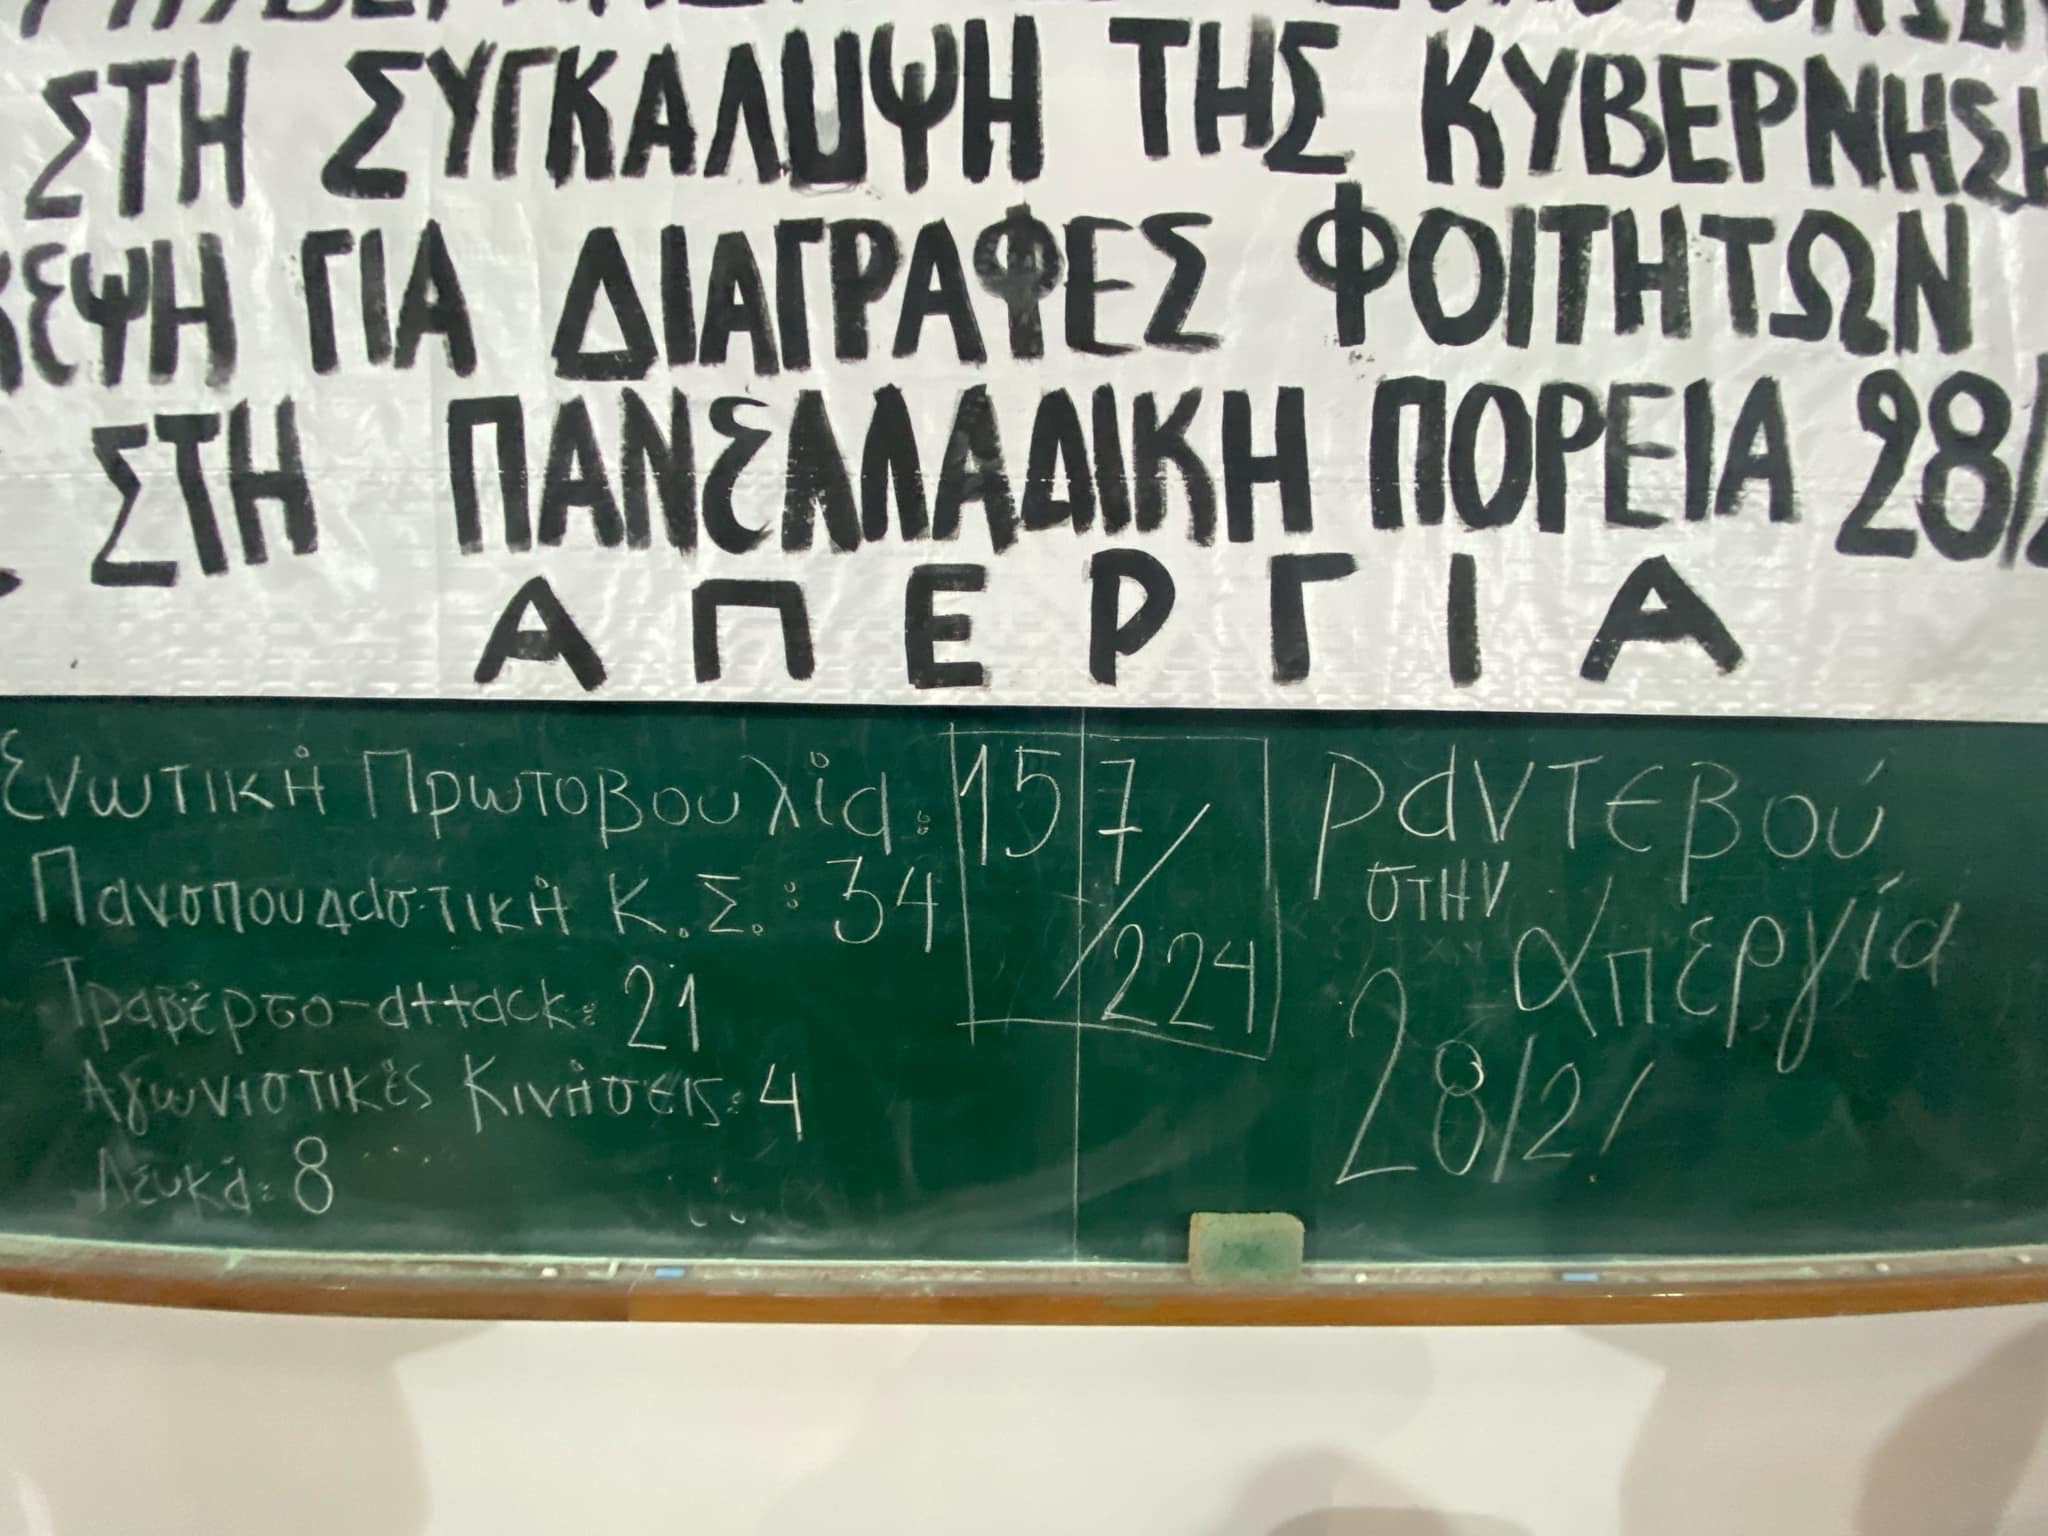 ΣΤΗ ΣΥΓΚΑΛΥΨΗ ΤΗΣ ΚΥΒΕΡΝΗΣΗ
ΚΕΨΗ ΓΙΑ ΔΙΑΓΡΑΦΕΣ ΦΟΙΤΗΤΩΝ
ΣΤΗ ΠΑΝΕΛΛΑΔΙΚΗ ΠΟΡΕΙΑ 28/2
ΑΠΕΡΓΙΑ
Ενωτική Πρωτοβουλία: 157/224
Πανσπουδαστική Κ.Σ.: 34
Τραβέρσο-attack: 21
Αγωνιστικές Κινήσεις: 4
Λευκά: 8
Ραντεβού
στην
απεργία
28/2!